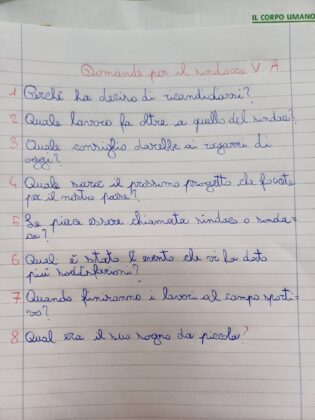 IL CORPO UMANO
Domande per il sindaco V A
1 Perchè ha deciso di ricandidarsi?
2 Quale lavoro fa oltre a quello del sindaco?
3 Quale consiglio darebbe ai ragazzi di
oggi?
4 Quale sarà il prossimo progetto che farete
per il nostro paese?
5 Le piace essere chiamata sindaco o sinda=
ca?
6 Qual è stato l'evento che vi ha dato
più soddisfazioni?
7 Quando finiranno i lavori al campo sporti=
vo?
8 Qual era il suo sogno da piccola?